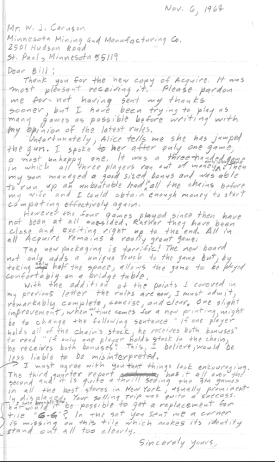 Nov. 6, 1964
Mr. W. J. Caruson
Minnesota Mining and Manufacturing Co.
2501 Hudson Road
St. Paul, Minnesota 55119
Dear Bill:
Thank you for the new copy of Acquire. It was
most pleasant receiving it. Please pardon
me for not having sent my thanks
sooner, but I have been trying to play as
many games as possible before writing with
my opinion of the latest rules.
Unfortunately, Alice tells me she has jumped
the gun. I spoke to her after only one game,
a most unhappy one. It was a three handed game
in which all three players ran out of money. Then
my son managed a good sized bonus and was able
to run up an unbeatable lead, all the chains before
my wife and I could obtain enough money to start
competing effectively again.
However the four games played since then have
not been at all one sided. Rather they have been
close and exciting right up to the end. All in
all Acquire remains a really great game.
The new packaging is terrific. The new board
not only adds a unique touch to the game but, by
taking half the space, allows the game to be played
comfortably on a bridge table.
With the addition of the points I covered in
my previous letter the rules are now, I must admit,
remarkably complete, concise, and clear. One slight
improvement, when time comes for a new printing, might
be to change the following sentence "if one player
holds all of the chain's stock, he receives both bonuses"
to read "if only one player holds stock in the chain,
he receives both bonuses". This, I believe, would be
less liable to be misinterpreted.
I must agree with you that things look encouraging.
The third quarter report has it all over the
second and it is quite a thrill seeing the 3M games
in all the best stores in New York, usually prominent-
ly displayed. Your selling trip was quite a success.
be possible to get a replacement for
tile "6-G"? In the set you sent me a corner
is missing on this tile which makes its identity
stand out all too clearly.
Sincerely yours,